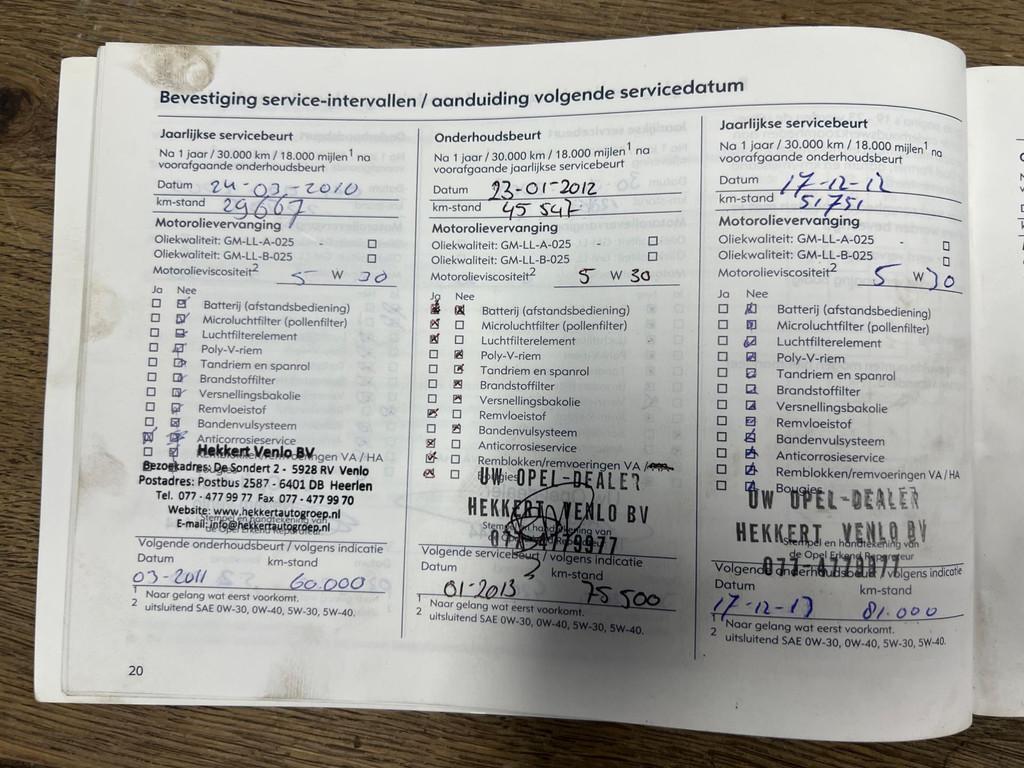 Bevestiging service-intervallen / aanduiding volgende servicedatum
Jaarlijkse servicebeurt
Na 1 jaar / 30.000 km / 18.000 mijlen1 na
voorafgaande onderhoudsbeurt
Datum 24-03-2010
km-stand 29667
Motorolievervanging
Oliekwaliteit: GM-LL-A-025
Oliekwaliteit: GM-LL-B-025
Motorolieviscositeit2 5 W 30
Ja Nee
Batterij (afstandsbediening)
Microluchtfilter (pollenfilter)
Luchtfilterelement
Poly-V-riem
Tandriem en spanrol
Brandstoffilter
Versnellingsbakolie
Remvloeistof
Bandenvulsysteem
Anticorrosieservice
Hekkert Venlo BV
Bezoekadres: De Sondert 2 - 5928 RV Venlo
Postadres: Postbus 2587 - 6401 DB Heerlen
Tel. 077 - 477 99 77 Fax 077 - 477 99 70
Website: www.hekkertautogroep.nl
E-mail: info@hekkertautogroep.nl
Volgende onderhoudsbeurt / volgens indicatie
Datum km-stand
03-2011 60.000
1 Naar gelang wat eerst voorkomt.
2 uitsluitend SAE 0W-30, 0W-40, 5W-30, 5W-40.
20
Onderhoudsbeurt
Na 1 jaar / 30.000 km / 18.000 mijlen1 na
voorafgaande jaarlijkse servicebeurt
Datum 23-01-2012
km-stand 45 547
Motorolievervanging
Oliekwaliteit: GM-LL-A-025
Oliekwaliteit: GM-LL-B-025
Motorolieviscositeit2 5 W 30
Ja Nee
Batterij (afstandsbediening)
Microluchtfilter (pollenfilter)
Luchtfilterelement
Poly-V-riem
Tandriem en spanrol
Brandstoffilter
Versnellingsbakolie
Remvloeistof
Bandenvulsysteem
Anticorrosieservice
Remblokken/remvoeringen VA /
UW OPEL-DEALER
HEKKERT VENLO BV
077-4779977
Volgende servicebeurt / volgens indicatie
Datum km-stand
01-2013 75 500
1 Naar gelang wat eerst voorkomt.
2 uitsluitend SAE 0W-30, 0W-40, 5W-30, 5W-40.
Jaarlijkse servicebeurt
Na 1 jaar / 30.000 km / 18.000 mijlen1 na
voorafgaande onderhoudsbeurt
Datum 17-12-12
km-stand 51751
Motorolievervanging
Oliekwaliteit: GM-LL-A-025
Oliekwaliteit: GM-LL-B-025
Motorolieviscositeit2 5 W 30
Ja Nee
Batterij (afstandsbediening)
Microluchtfilter (pollenfilter)
Luchtfilterelement
Poly-V-riem
Tandriem en spanrol
Brandstoffilter
Versnellingsbakolie
Remvloeistof
Bandenvulsysteem
Anticorrosieservice
Remblokken/remvoeringen VA / HA
Bougies
UW OPEL-DEALER
HEKKERT VENLO BV
Stempel en handtekening van
de Opel Erkend Reparateur
077-4779977
Volgende onderhoudsbeurt / volgens indicatie
Datum km-stand
17-12-13 81.000
1 Naar gelang wat eerst voorkomt.
2 uitsluitend SAE 0W-30, 0W-40, 5W-30, 5W-40.